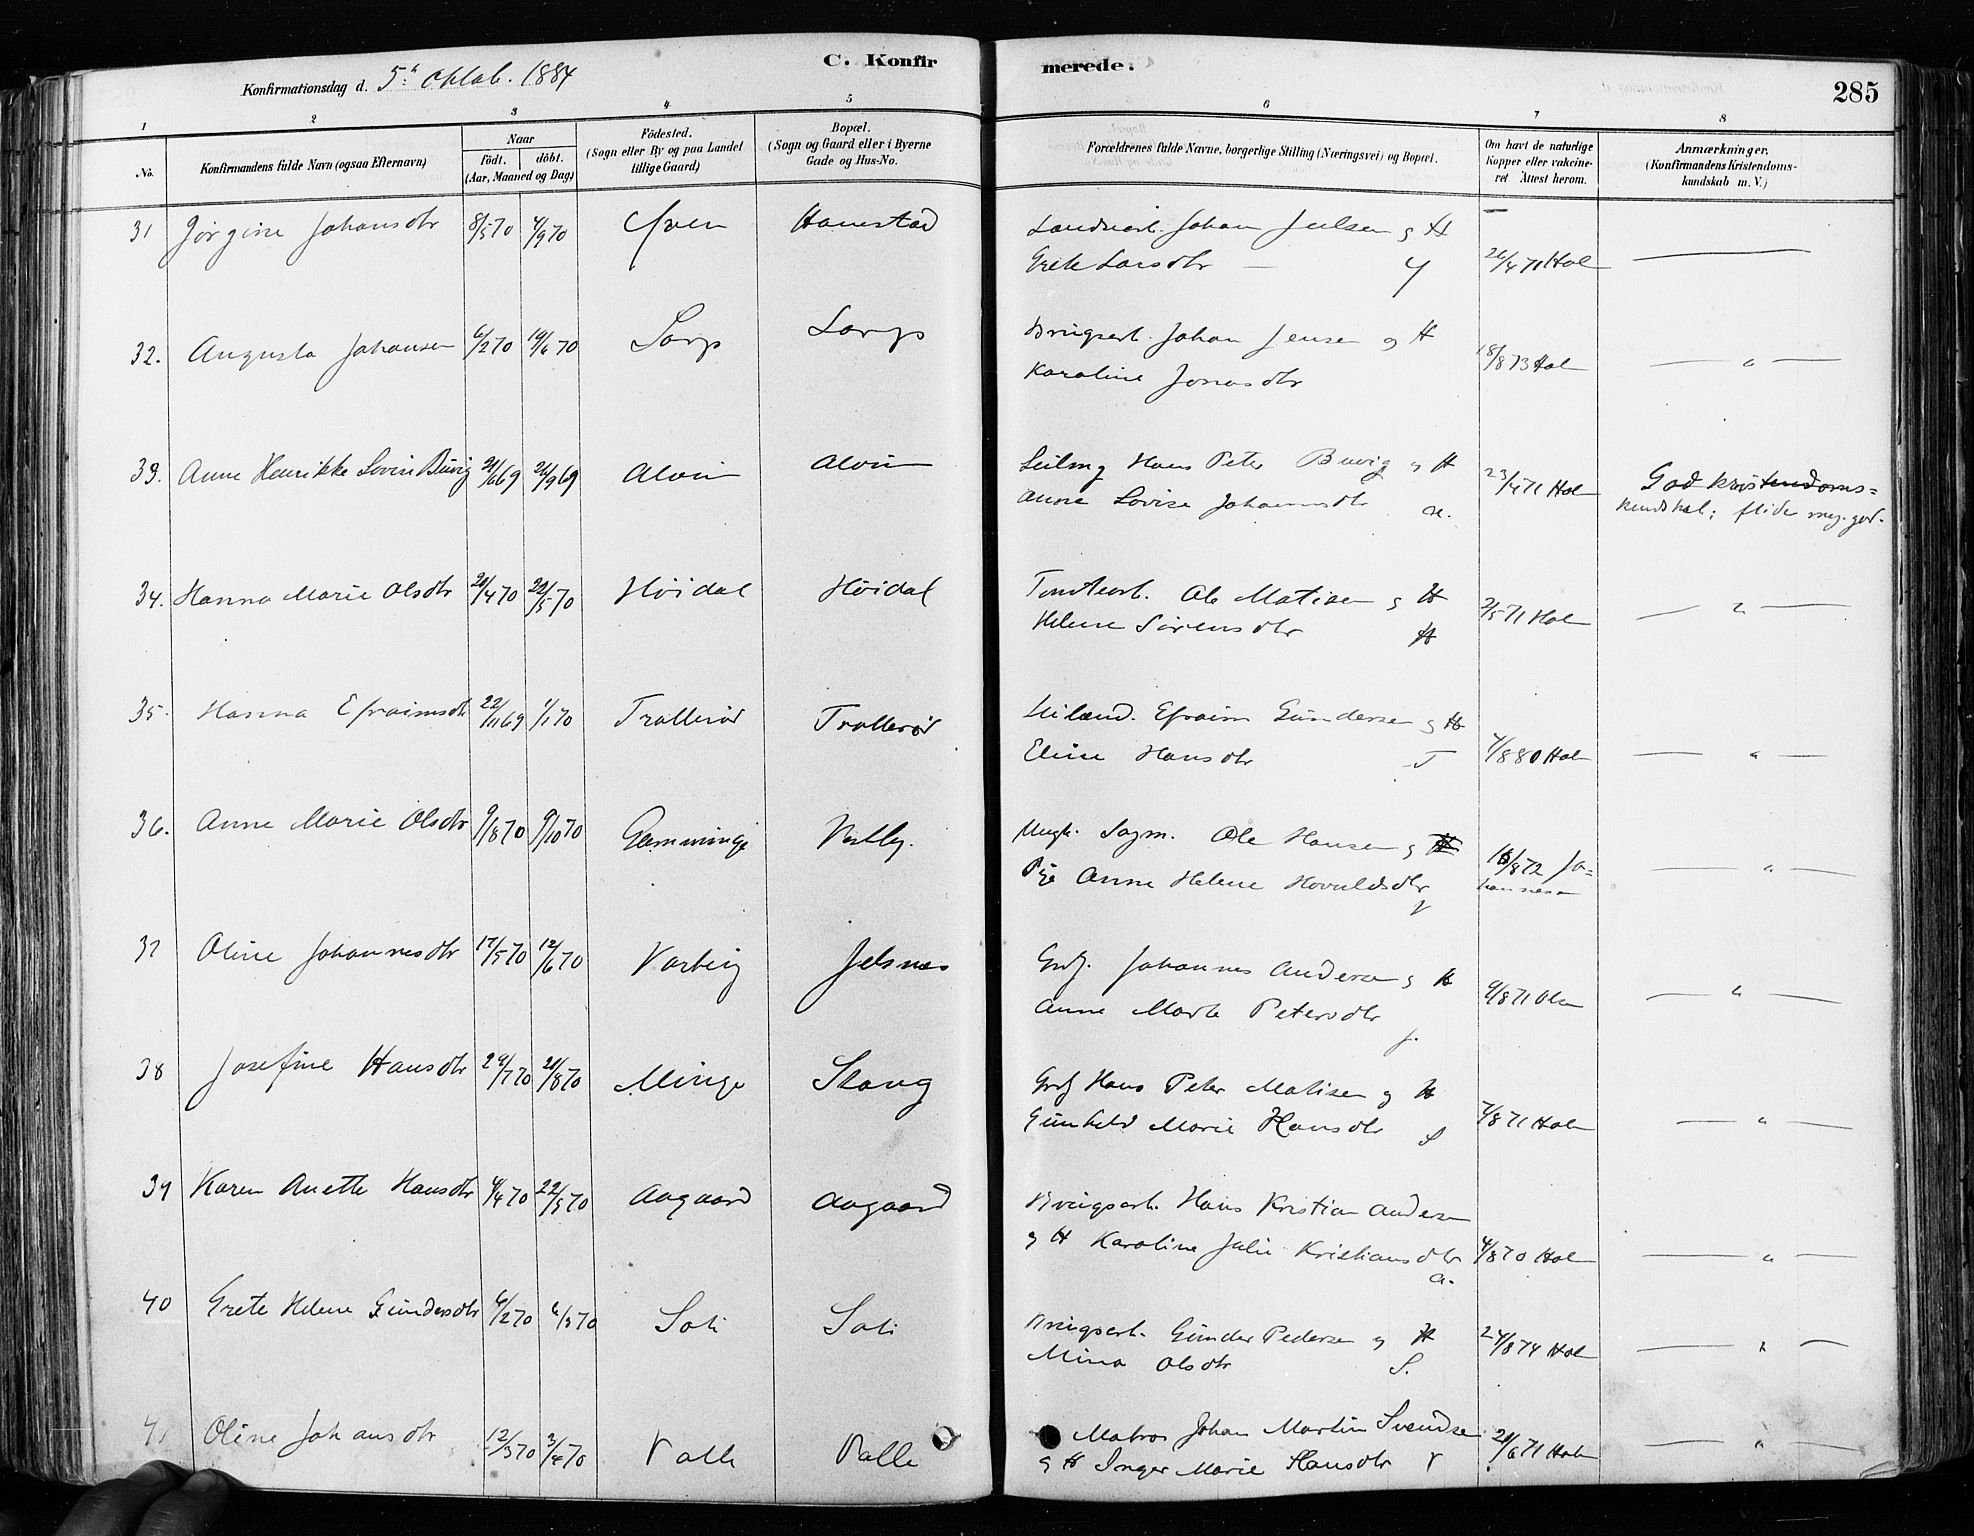 C. Konfirmerede.
285
Konfirmationsdag d. 5te Oktob. 1884
1 2 3 4 5 6 7 8
No. Konfirmandens fulde Navn (ogsaa Efternavn) Naar Födt. döbt. (Aar, Maaned og Dag) Födested. (Sogn eller By og paa Landet tillige Gaard) Bopæl. (Sogn og Gaard eller i Byerne Gade og Hus-No. Forældrenes fulde Navne, borgerlige Stilling (Næringsvei) og Bopæl. Om havt de naturlige Kopper eller vakcineret. Attest herom. Anmærkninger. (Konfirmandens Kristendomskundskab m. V.)
31 Jørgine Johansdtr 8/5 70 4/9 70 Hanestad Johan Julsen og H
Grete Larsdtr — Y 26/4 71 Hol —
32. Augusta Johansen 6/2 70 19/6 70 Sorp Sorp Brugserb. Johan Jensen og H
Karoline Jonasdtr 18/8 73 Hol — " —
33. Anne Henrikke Lovise Buvig 21/6 69 26/9 69 Alvim Alvim Hans Peter Buvig og H
Anne Lovise Johannsdtr a. 23/4 71 Hol God kristendoms=
kundskab; flid meg. god.
34. Hanna Marie Olsdtr 20/4 70 22/5 70 Höidal Höidal Tomtearb. Ole Matisen og H
Helene Sörensdtr H 2/5 71 Hol — " —
35. Hanna Efraimsdtr 22/11 69 1/1 70 Trollerød Trollerød Leilænd. Efraim Gundersen og H
Eline Hansdtr T 7/8 80 Hol — " —
36. Anne Marie Olsdtr 9/8 70 9/10 70 Gamminge Vestby. Ungk. Sagm. Ole Hansen og H
Pige Anne Helene Hovaldsdtr 18/8 72 Jo=
hannesen — " —
37 Oline Johannesdtr 17/5 70 12/6 70 Varteig Jelsnes Grdj. Johannes Andersen og H
Anne Marte Petersdtr J. 9/8 71 — " —
38 Josefine Hansdtr 29/7 70 21/8 70 Minge Skaug Grdj Hans Peter Matisen og H
Gunhild Marie Hansdtr S 7/8 71 Hol — " —
39 Karen Anette Hansdtr 4/4 70 22/5 70 Aagaard Aagaard Brugserb. Hans Kristian Andersen
og H Karoline Julie Kristiansdtr a. 4/8 70 Hol — " —
40 Grete Helene Gundersdtr 6/2 70 6/3 70 Soli Soli Brugserb. Gunder Pedersen og H
Mina Olsdtr S. 24/8 74 Hol — " —
41 Oline Johansdtr 12/3 70 3/4 70 Valle Valle Matros Johan Martin Svendsen
og H Inger Marie Hansdtr V 21/6 71 Hol — " —